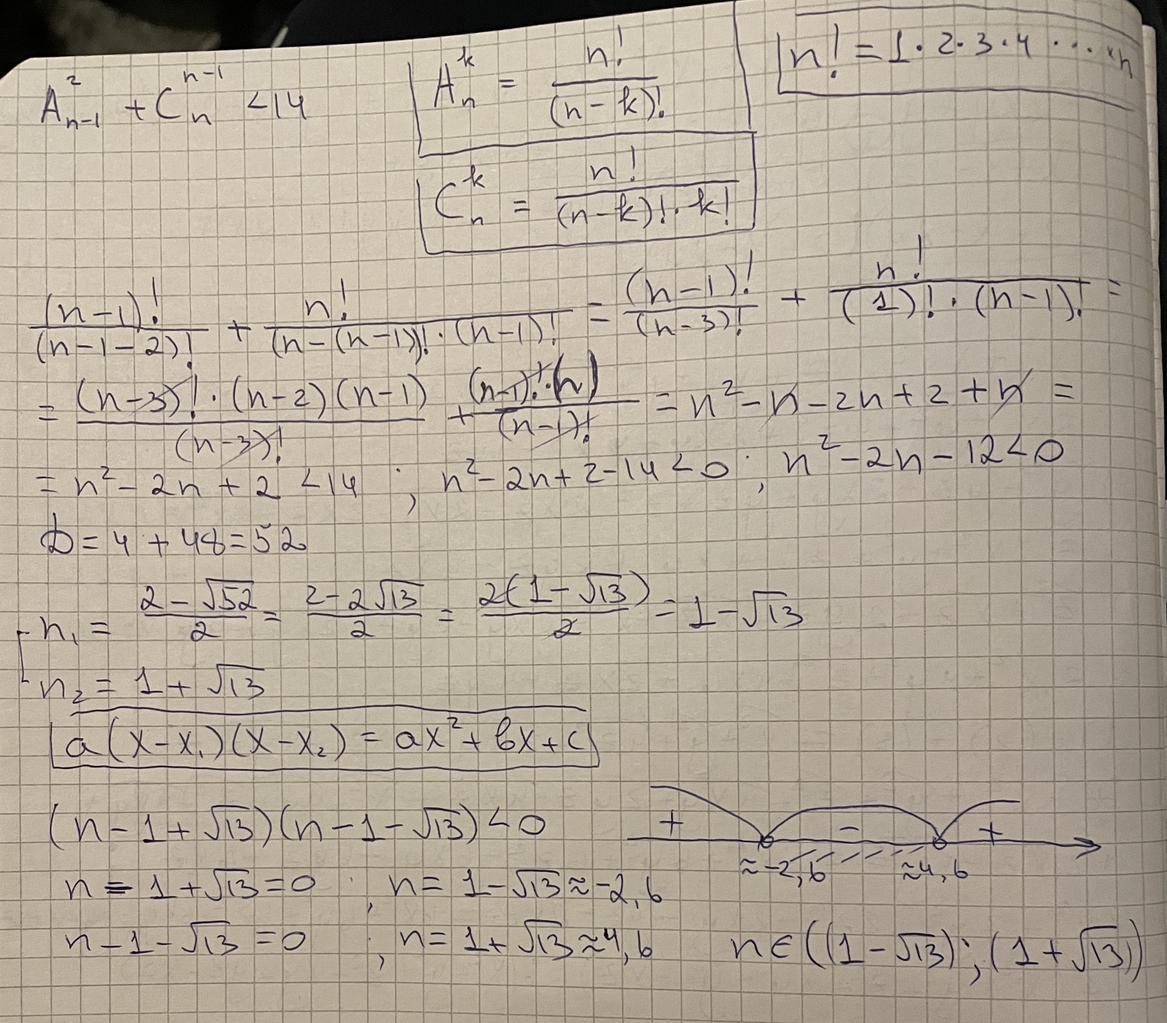 A²ₙ₋₁ + Cₙⁿ⁻¹ < 14
Aₙᵏ = n! / (n-k)!
n! = 1·2·3·4 ···· ×n
Cₙᵏ = n! / ((n-k)!·k!)
(n-1)! / (n-1-2)! + n! / ((n-(n-1))!·(n-1)!) = (n-1)! / (n-3)! + n! / ((1)!·(n-1)!) =
= (n-3)!·(n-2)(n-1) / (n-3)! + (n-1)!·(n) / (n-1)! = n²-n-2n+2+n =
= n²-2n+2 <14 ; n²-2n+2-14<0 ; n²-2n-12<0
D = 4 + 48 = 52
n₁ = (2-√52)/2 = (2-2√13)/2 = 2(1-√13)/2 = 1-√13
n₂ = 1+√13
a(x-x₁)(x-x₂) = ax²+bx+c
(n-1+√13)(n-1-√13)<0
+ - +
≈-2,6 ≈4,6
n-1+√13=0 ; n=1-√13≈-2,6
n-1-√13=0 ; n=1+√13≈4,6
n∈((1-√13);(1+√13))